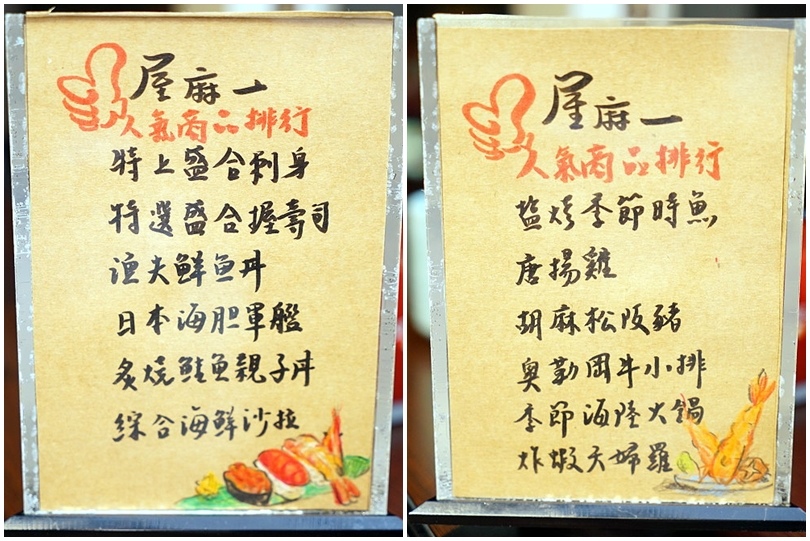 屋麻一
人氣商品排行
特上盛合刺身
特選盛合握壽司
漁夫鮮魚丼
日本海胆軍艦
炙燒鮭魚親子丼
綜合海鮮沙拉
屋麻一
人氣商品排行
盐烤季節時魚
唐揚雞
胡麻松阪豬
奥勒岡牛小排
季節海陸火鍋
炸蝦天婦羅